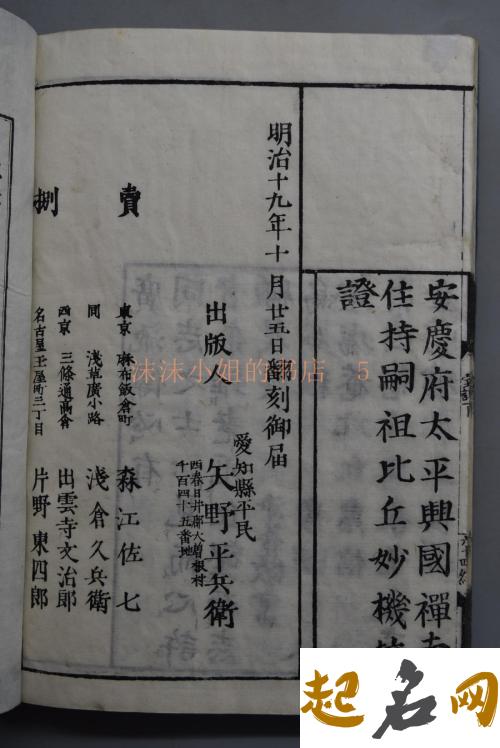 安慶府太平興國禪
住持嗣祖比丘妙機
證
明治十九年十月廿五日翻刻御届
出版人
愛知縣平民
西春日井郡大曽根村
千百四十五番地
矢野平兵衛
賣捌
東京 麻布飯倉町 森江佐七
同 淺草廣小路 淺倉久兵衛
西京 三條通高倉 出雲寺文治郎
名古屋玉屋町三丁目 片野東四郎
沫沫小姐的书店 5
起名网